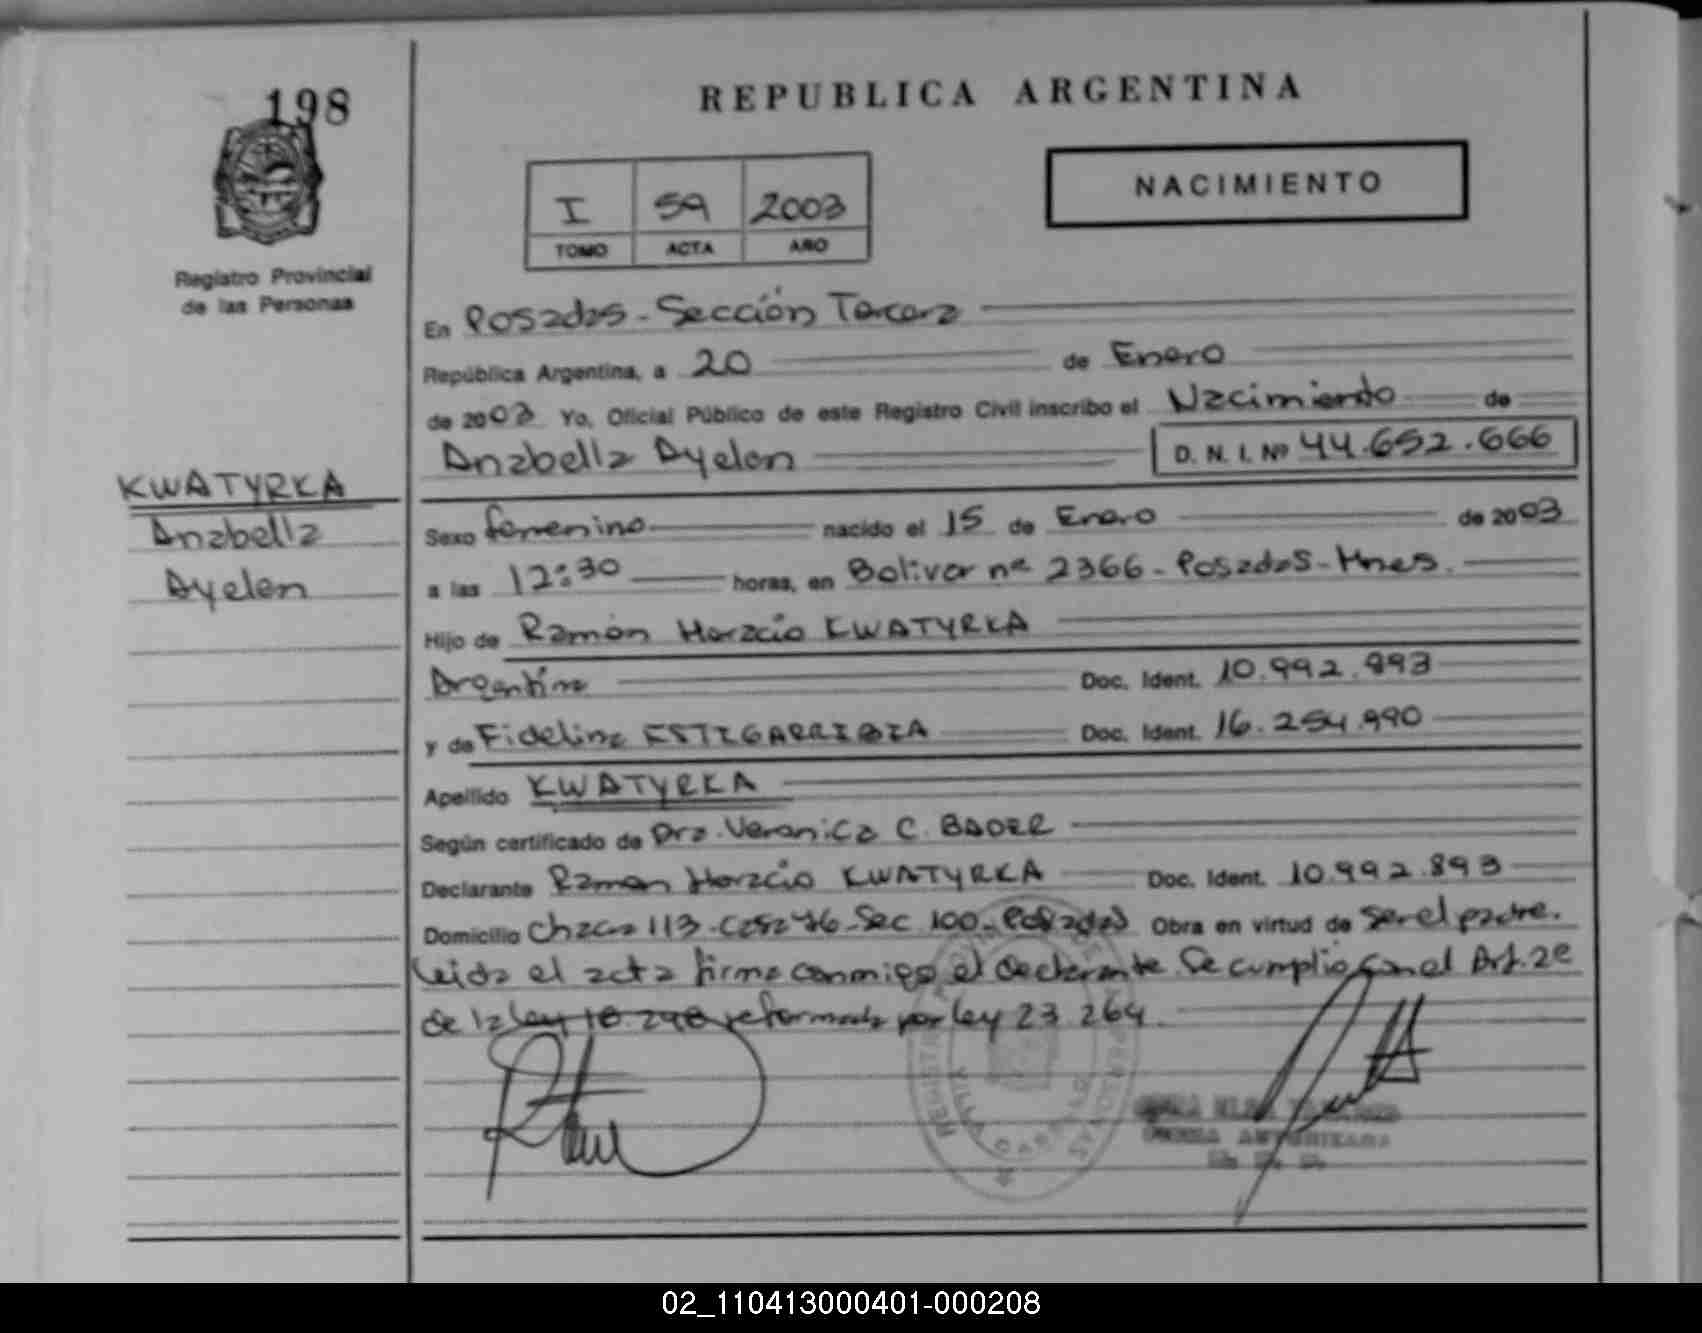 198
REPUBLICA ARGENTINA
NACIMIENTO
I 59 2003
TOMO ACTA AÑO
Registro Provincial
de las Personas
En Posadas - Sección Tercera
República Argentina, a 20 de Enero
de 2003 Yo, Oficial Público de este Registro Civil inscribo el Nacimiento de
Anabella Ayelen D. N. I. Nº 44.652.666
KWATYRKA
Anabella
Ayelen
Sexo femenino nacido el 15 de Enero de 2003
a las 12:30 horas, en Bolivar nº 2366 - Posadas - Mnes.
Hijo de Ramón Horacio KWATYRKA
Argentina Doc. Ident. 10.992.893
y de Fidelina ESTIGARRIBIA Doc. Ident. 16.254.990
Apellido KWATYRKA
Según certificado de Dra. Veronica C. BADER
Declarante Ramon Horacio KWATYRKA Doc. Ident. 10.992.893
Domicilio Chacra 113 - Casa 46 - Sec 100 - Posadas Obra en virtud de ser el padre.
Leida el acta firma conmigo el declarante. Se cumplio con el Art. 2º
de la Ley 18.248 reformada por Ley 23.264.
AUTORIZADA
02_110413000401-000208